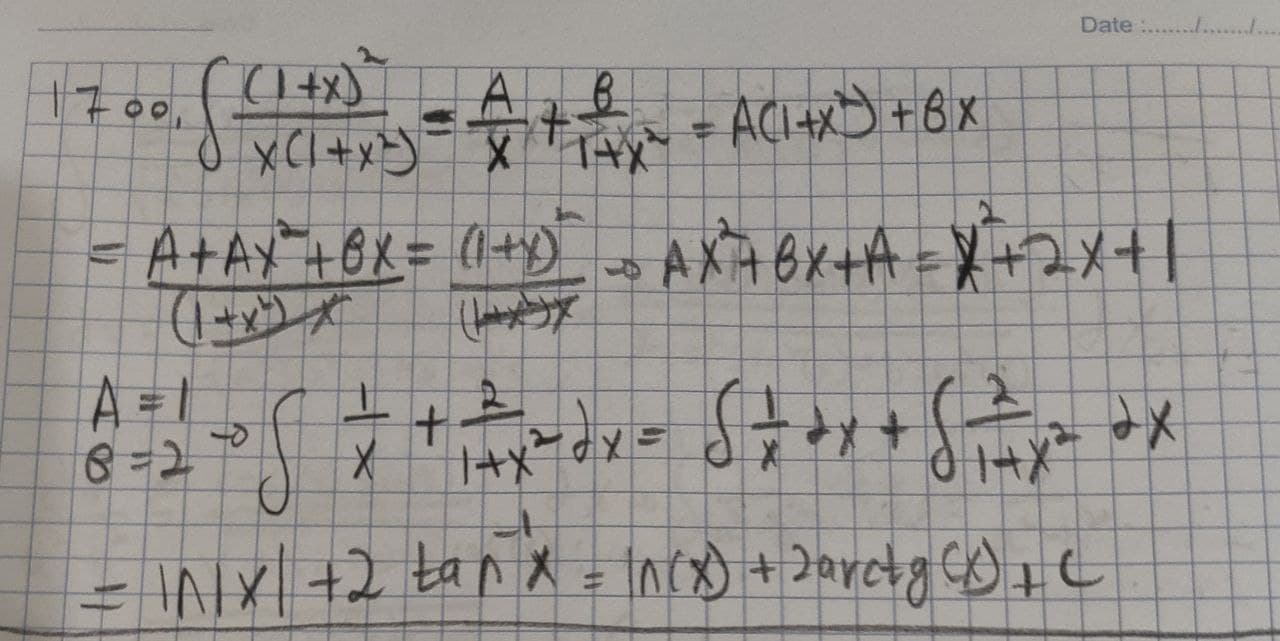 Date :......../......../....
1700. ∫ (1+x)² / x(1+x²) = A/x + B/1+x² = A(1+x²) + Bx
= A+Ax²+Bx / (1+x²) x = (1+x)² / (1+x²)x → Ax²+Bx+A = x²+2x+1
A = 1
B = 2 → ∫ 1/x + 2/1+x² dx = ∫ 1/x dx + ∫ 2/1+x² dx
= ln|x| + 2 tan⁻¹x = ln(x) + 2arctg(x) + C